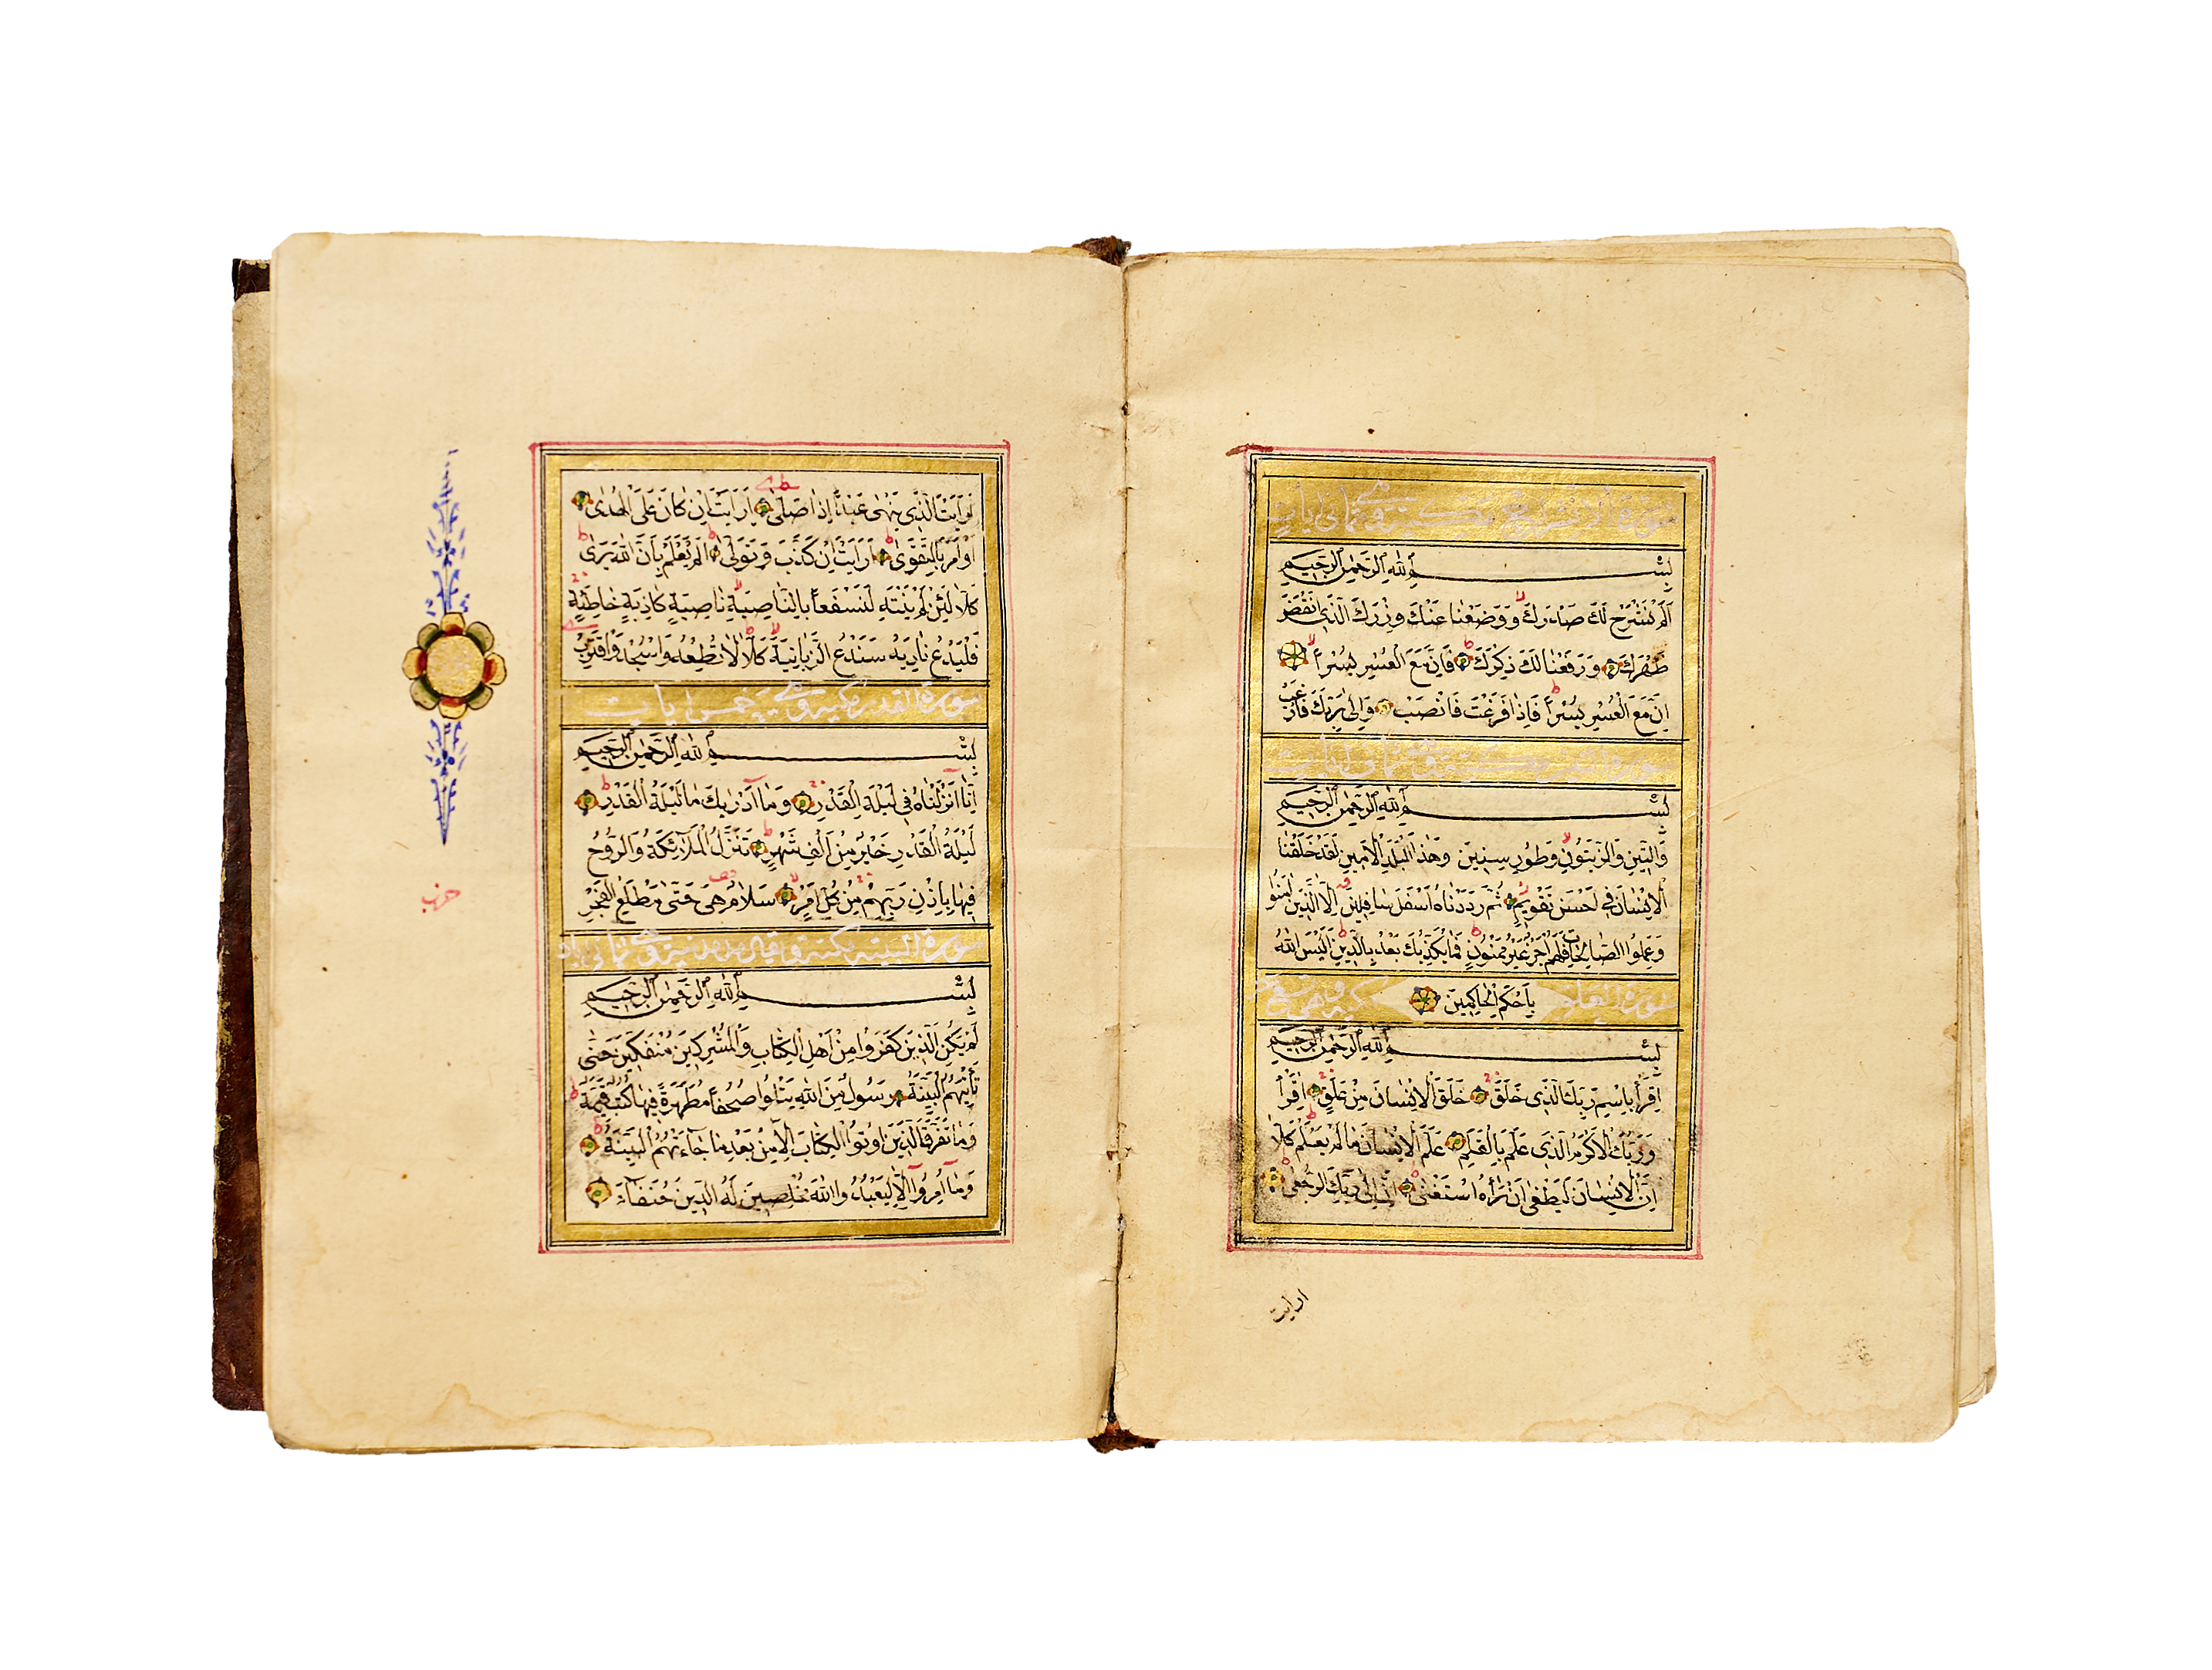 سورة الانشراح مكية وهي ثماني ايات
بِسْمِ اللهِ الرَّحْمٰنِ الرَّحِيمِ
اَلَمْ نَشْرَحْ لَكَ صَدْرَكَ وَوَضَعْنَا عَنْكَ وِزْرَكَ الَّذِي اَنْقَضَ
ظَهْرَكَ وَرَفَعْنَا لَكَ ذِكْرَكَ فَاِنَّ مَعَ الْعُسْرِ يُسْرًا
اِنَّ مَعَ الْعُسْرِ يُسْرًا فَاِذَا فَرَغْتَ فَانْصَبْ وَاِلٰى رَبِّكَ فَارْغَبْ
سورة التين مكية وهي ثمان ايات
بِسْمِ اللهِ الرَّحْمٰنِ الرَّحِيمِ
وَالتِّينِ وَالزَّيْتُونِ وَطُورِ سِينِينَ وَهٰذَا الْبَلَدِ الْاَمِينِ لَقَدْ خَلَقْنَا
الْاِنْسَانَ فِي اَحْسَنِ تَقْوِيمٍ ثُمَّ رَدَدْنَاهُ اَسْفَلَ سَافِلِينَ اِلَّا الَّذِينَ اٰمَنُوا
وَعَمِلُوا الصَّالِحَاتِ فَلَهُمْ اَجْرٌ غَيْرُ مَمْنُونٍ فَمَا يُكَذِّبُكَ بَعْدُ بِالدِّينِ اَلَيْسَ اللهُ
بِاَحْكَمِ الْحَاكِمِينَ
سورة العلق مكية وهي تسع عشر
بِسْمِ اللهِ الرَّحْمٰنِ الرَّحِيمِ
اِقْرَأْ بِاسْمِ رَبِّكَ الَّذِي خَلَقَ خَلَقَ الْاِنْسَانَ مِنْ عَلَقٍ اِقْرَأْ
وَرَبُّكَ الْاَكْرَمُ الَّذِي عَلَّمَ بِالْقَلَمِ عَلَّمَ الْاِنْسَانَ مَا لَمْ يَعْلَمْ كَلَّا
اِنَّ الْاِنْسَانَ لَيَطْغٰى اَنْ رَاٰهُ اسْتَغْنٰى اِنَّ اِلٰى رَبِّكَ الرُّجْعٰى
ارايت
اَرَاَيْتَ الَّذِي يَنْهٰى عَبْدًا اِذَا صَلّٰى اَرَاَيْتَ اِنْ كَانَ عَلَى الْهُدٰى
اَوْ اَمَرَ بِالتَّقْوٰى اَرَاَيْتَ اِنْ كَذَّبَ وَتَوَلّٰى اَلَمْ يَعْلَمْ بِاَنَّ اللهَ يَرٰى
كَلَّا لَئِنْ لَمْ يَنْتَهِ لَنَسْفَعًا بِالنَّاصِيَةِ نَاصِيَةٍ كَاذِبَةٍ خَاطِئَةٍ
فَلْيَدْعُ نَادِيَهُ سَنَدْعُ الزَّبَانِيَةَ كَلَّا لَا تُطِعْهُ وَاسْجُدْ وَاقْتَرِبْ
سورة القدر مكية وهي خمس ايات
بِسْمِ اللهِ الرَّحْمٰنِ الرَّحِيمِ
اِنَّا اَنْزَلْنَاهُ فِي لَيْلَةِ الْقَدْرِ وَمَا اَدْرٰيكَ مَا لَيْلَةُ الْقَدْرِ
لَيْلَةُ الْقَدْرِ خَيْرٌ مِنْ اَلْفِ شَهْرٍ تَنَزَّلُ الْمَلٰئِكَةُ وَالرُّوحُ
فِيهَا بِاِذْنِ رَبِّهِمْ مِنْ كُلِّ اَمْرٍ سَلَامٌ هِيَ حَتّٰى مَطْلَعِ الْفَجْرِ
سورة البينة مكية وقيل مدنية وهي ثماني ايات
بِسْمِ اللهِ الرَّحْمٰنِ الرَّحِيمِ
لَمْ يَكُنِ الَّذِينَ كَفَرُوا مِنْ اَهْلِ الْكِتَابِ وَالْمُشْرِكِينَ مُنْفَكِّينَ حَتّٰى
تَأْتِيَهُمُ الْبَيِّنَةُ رَسُولٌ مِنَ اللهِ يَتْلُوا صُحُفًا مُطَهَّرَةً فِيهَا كُتُبٌ قَيِّمَةٌ
وَمَا تَفَرَّقَ الَّذِينَ اُوتُوا الْكِتَابَ اِلَّا مِنْ بَعْدِ مَا جَاءَتْهُمُ الْبَيِّنَةُ
وَمَا اُمِرُوا اِلَّا لِيَعْبُدُوا اللهَ مُخْلِصِينَ لَهُ الدِّينَ حُنَفَاءَ
حزب